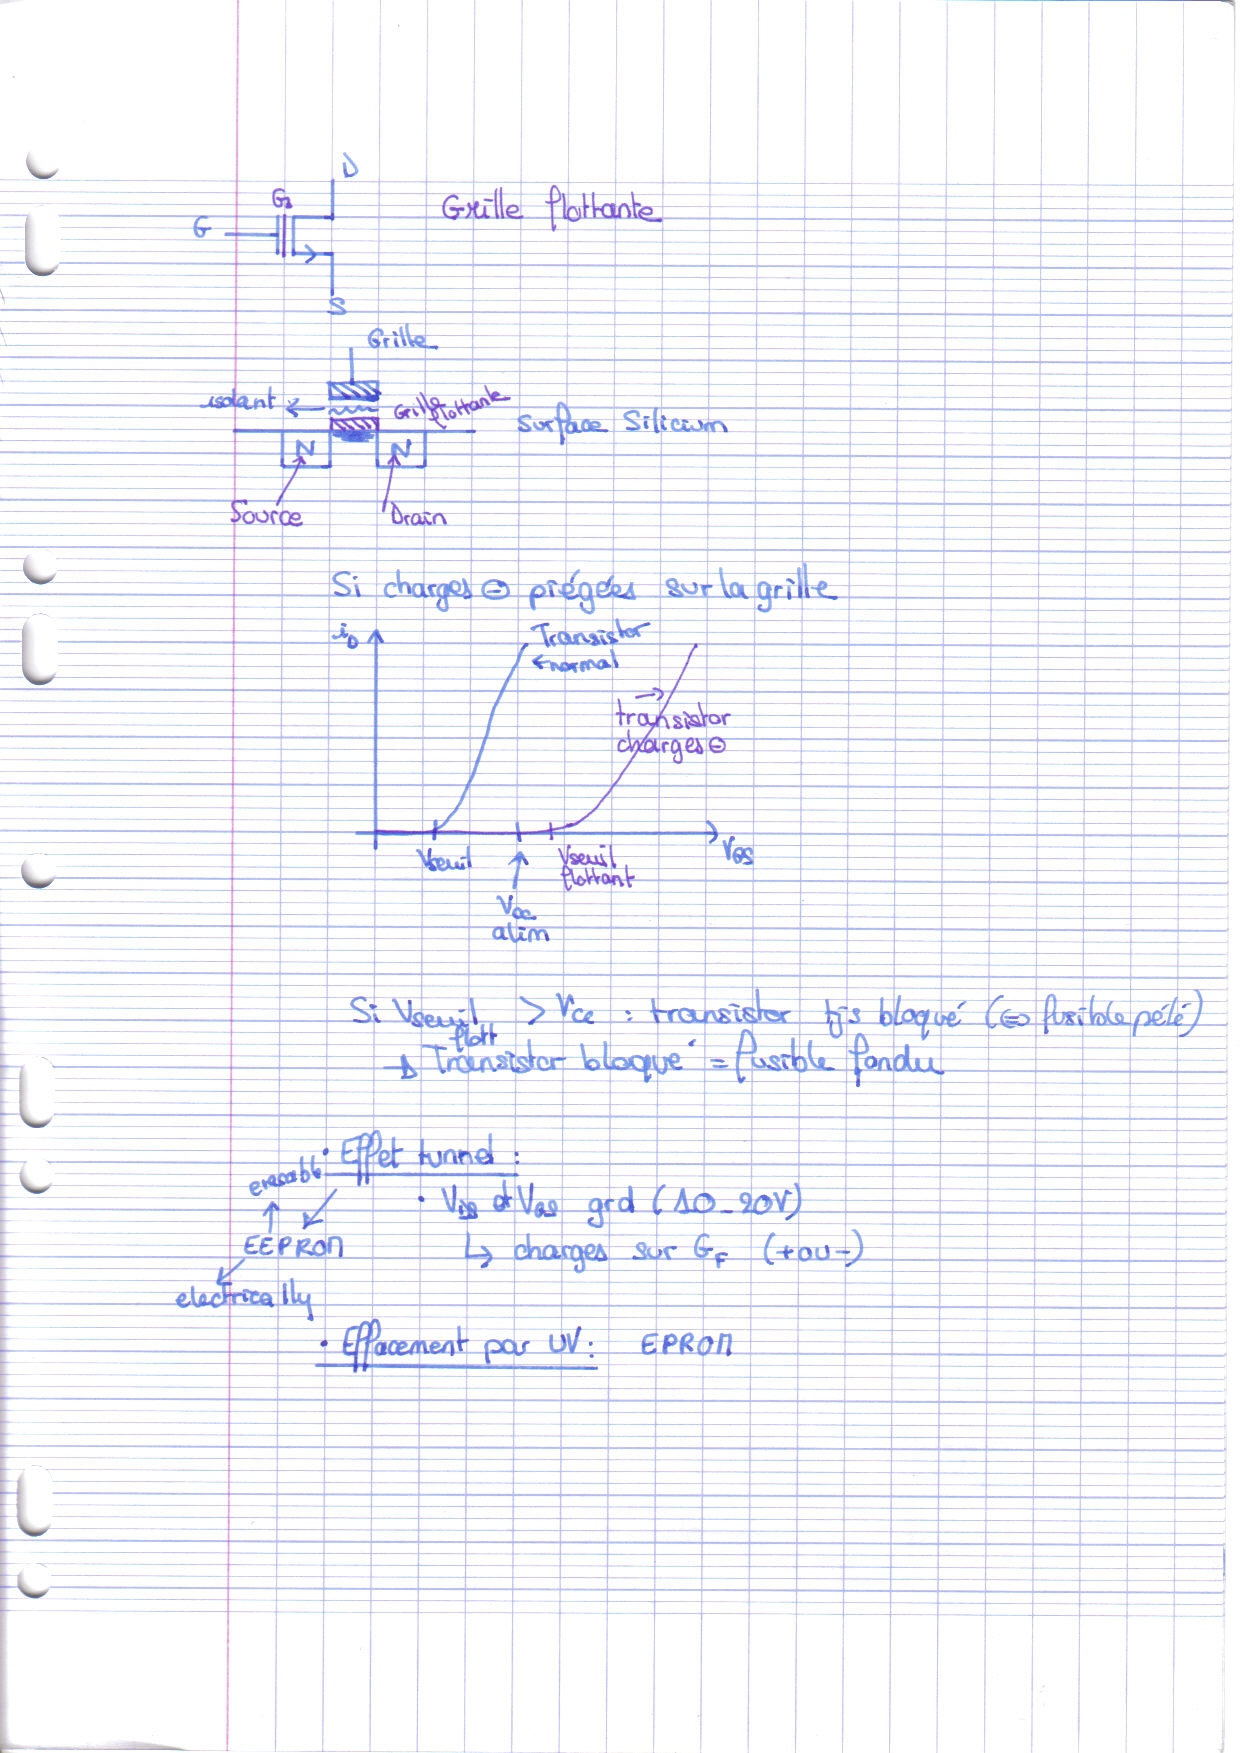 D
G₂
Grille flottante
G
S
Grille
isolant
Grille flottante
Surface Silicium
N
N
Source
Drain
Si charges ⊖ piégées sur la grille
i_D
Transistor
normal
transistor
charges ⊖
Vseuil
Vseuil
flottant
V_GS
Vcc
alim
Si Vseuil flott > Vcc : transistor tjs bloqué (⇔ fusible pété)
→ Transistor bloqué = fusible fondu
• Effet tunnel :
erasable
• V_DS et V_GS grd (10_20V)
EEPROM
↳ charges sur G_F (+ou-)
electrically
• Effacement par UV : EPROM